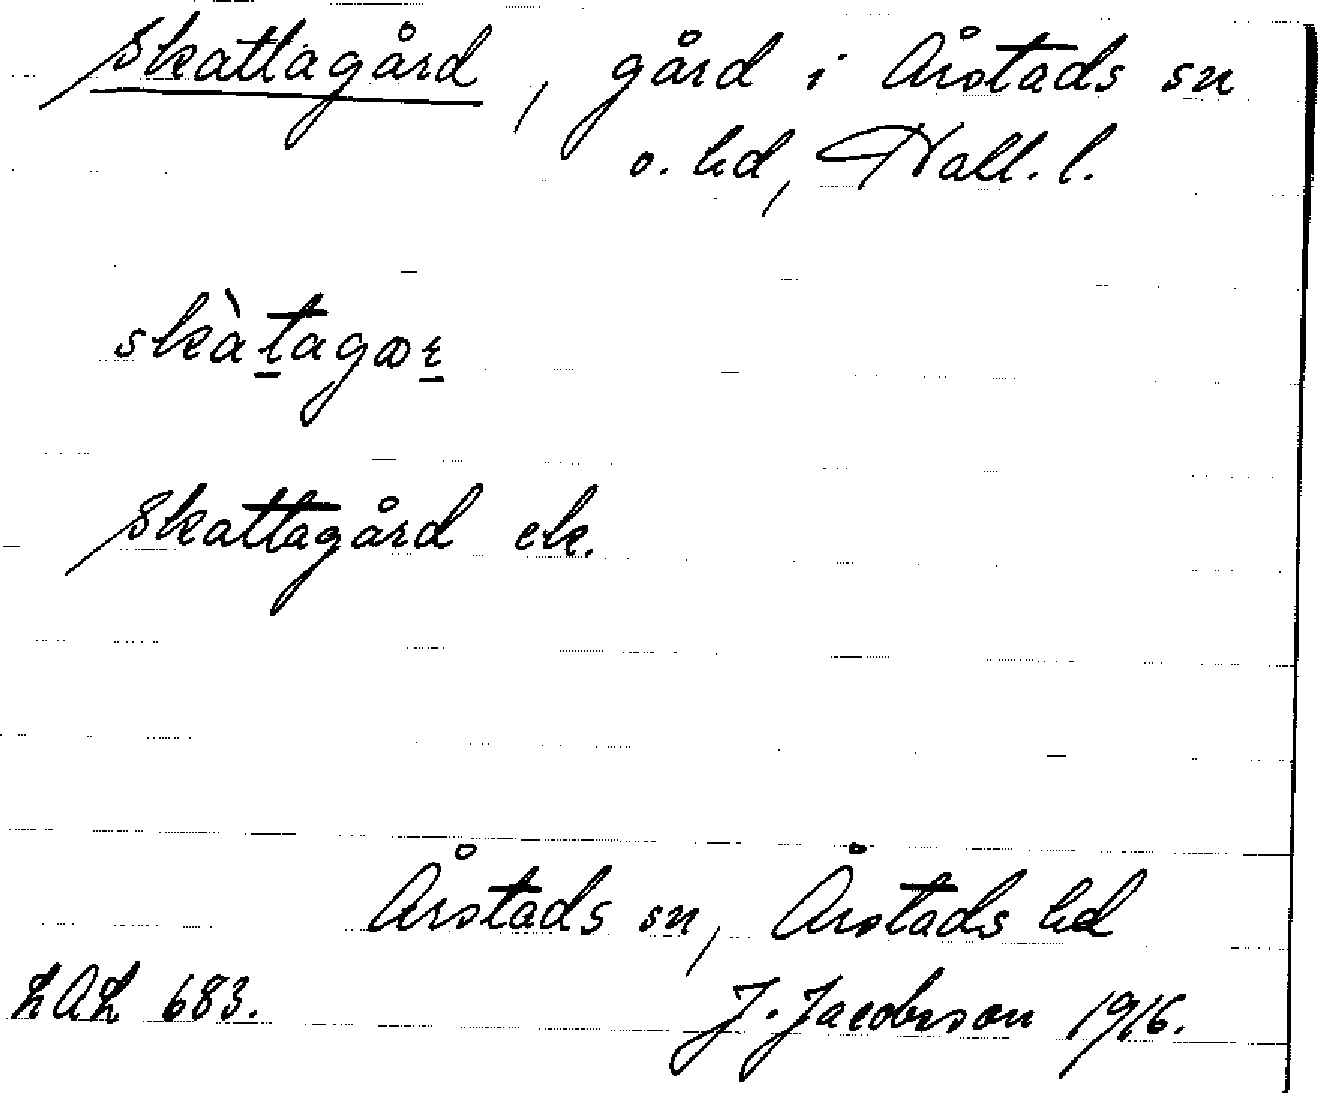 Skattagård, gård i Årstads sn
o. hd, Hall. l.
skàtagær
Skattagård ek.
Årstads sn, Årstads hd
LAL 683.
J. Jacobsson 1916.